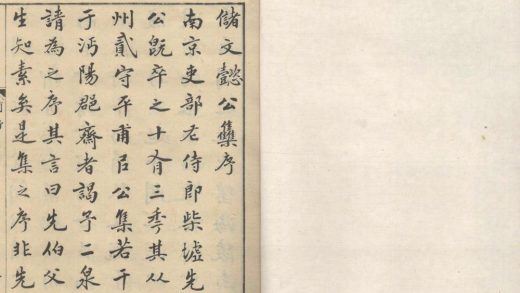 儲文懿公集序
南京吏部左侍郎柴墟先
公既卒之十有三季其从
州貳守平甫㠯公集若干
于沔陽郡齋者謁予二泉
請為之序其言曰先伯父
生知素矣是集之序非先